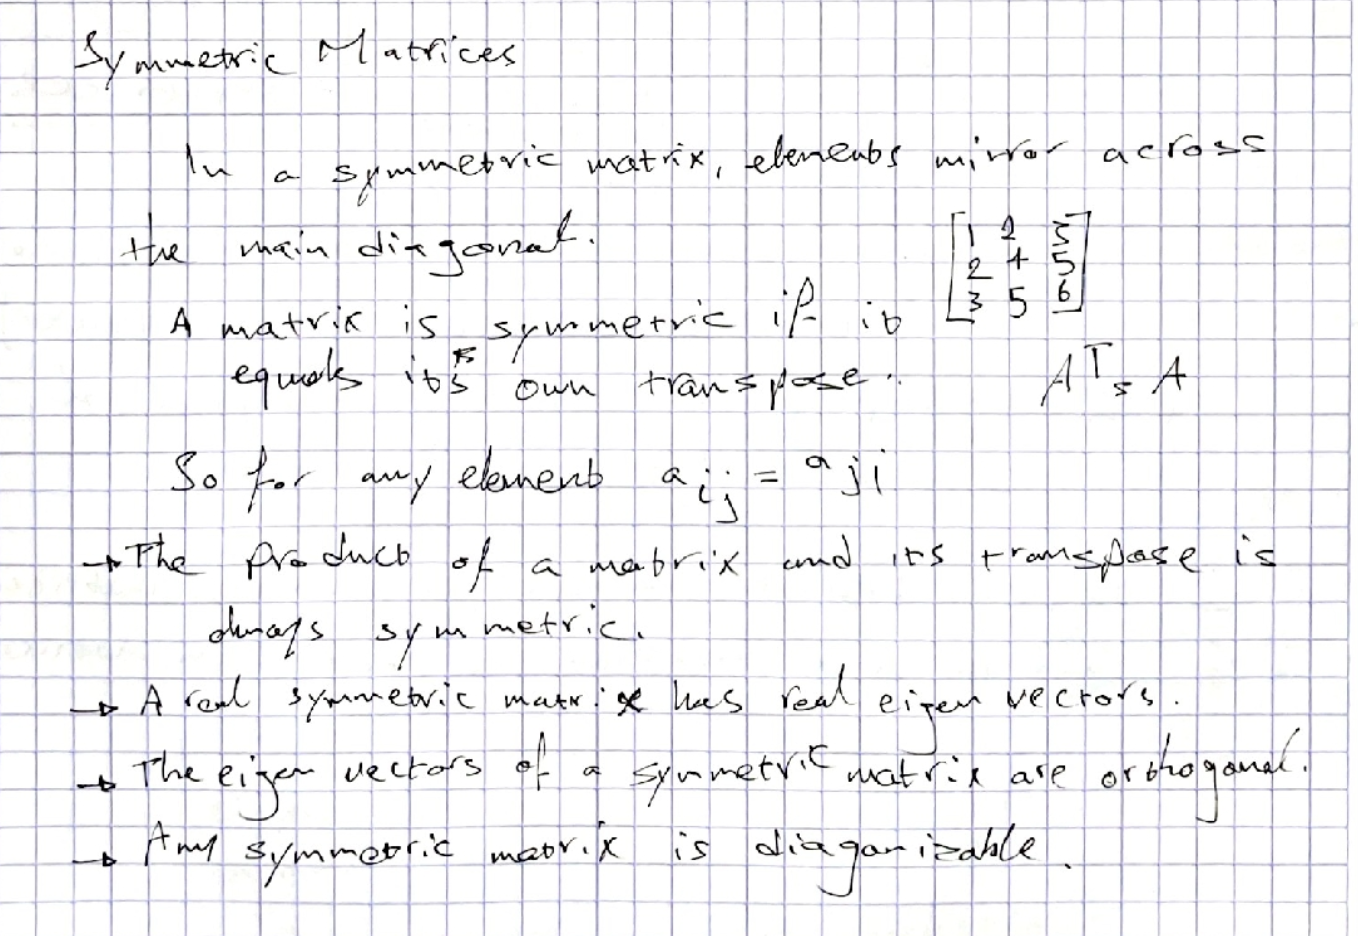 Symmetric Matrices
In a symmetric matrix, elements mirror across
the main diagonal.
[1 2 3
2 4 5
3 5 6]
A matrix is symmetric if it
equals its own transpose.
A^T = A
So for any element a_ij = a_ji
→ The product of a matrix and its transpose is
always symmetric.
→ A real symmetric matrix has real eigen vectors.
→ The eigen vectors of a symmetric matrix are orthogonal.
→ Any symmetric matrix is diagonizable.